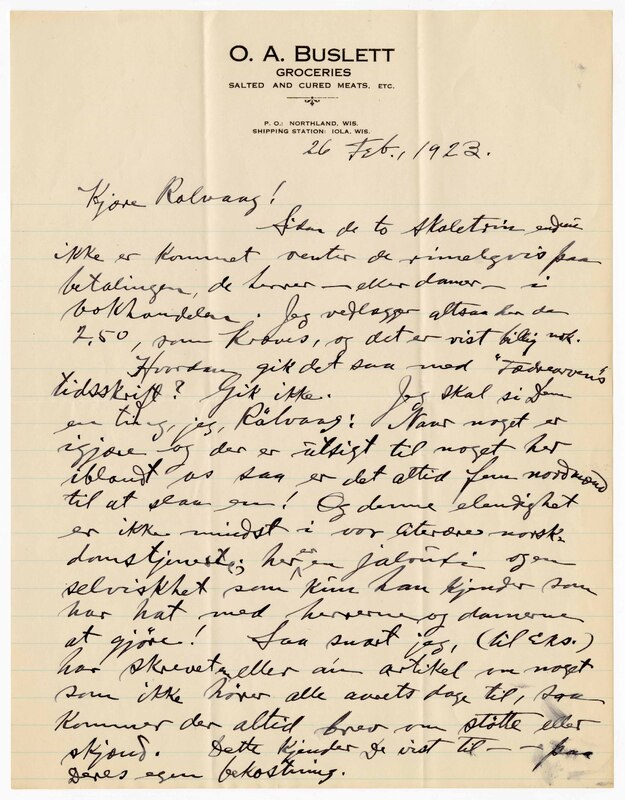 O. A. BUSLETT
GROCERIES
SALTED AND CURED MEATS, ETC.
P. O.: NORTHLAND, WIS.
SHIPPING STATION: IOLA, WIS.
26 Feb., 1923.
Kjære Rölvaag!
Siden de to Skaletrin endnu
ikke er kommet venter de rimeligvis paa
betalingen, de herrer — eller damer — i
bokhandelen. Jeg vedlægger altsaa her de
2,50, som kræves, og det er vist billig nok.
Hvordan gik det saa med "Fædrearven's
tidsskrift? Gik ikke. Jeg skal si Dem
en ting, jeg, Rölvaag! Naar noget er
igjære og der er utsigt til noget her
iblandt os saa er det altid fem nordmænd
til at slaa en! Og denne elendighet
er ikke mindst i vor literære norsk-
domstjeneste; her er en jalousi og en
selviskhet som kun han kjender som
har hat med herrerne og damerne
at gjöre! Saa snart jeg, (til Eks.)
har skrevet en eller an artikel om noget
som ikke hörer alle aarets dage til, saa
kommer der altid brev om stötte eller
skjænd. Dette kjender De vist til — paa
Deres egen bekostning.